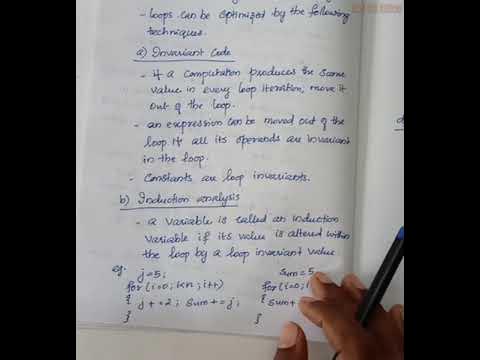 - Loops can be optimized by the following
techniques.
a) Invariant Code
- If a computation produces the same
value in every loop iteration, move it
out of the loop.
- an expression can be moved out of the
loop if all its operands are invariant
in the loop.
- Constants are loop invariants.
b) Induction analysis
- a variable is called an induction
variable if its value is altered within
the loop by a loop invariant value
eg: j=5; sum=5
for (i=0; i<n; i++) for (i=0;
{ j+=2; sum+=j; { sum+
} }